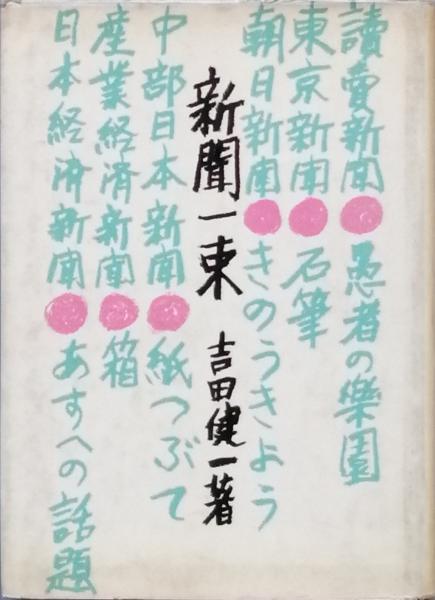 讀賣新聞●愚者の樂園
東京新聞●石筆
朝日新聞●きのうきよう
新聞一束 吉田健一著
中部日本新聞●紙つぶて
産業経済新聞●箱
日本経済新聞●あすへの話題